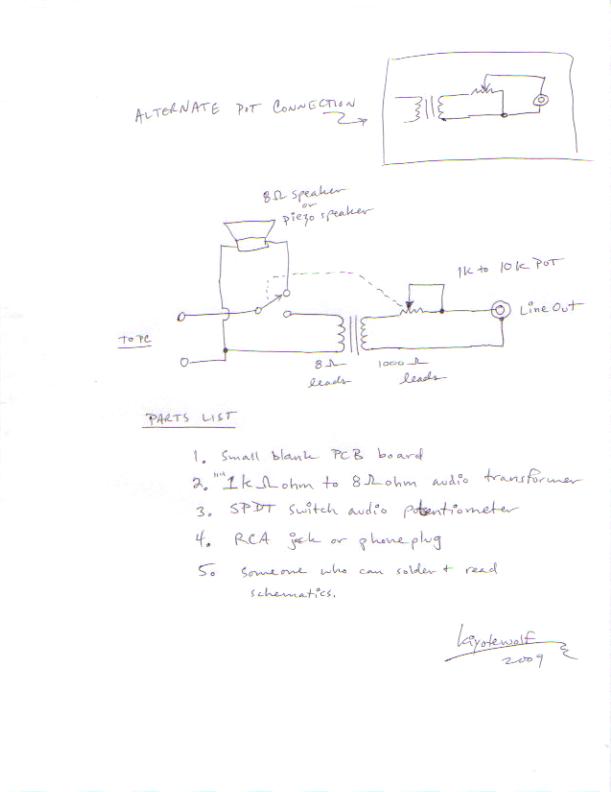 ALTERNATE POT CONNECTION
8Ω speaker
or
piezo speaker
1K to 10K POT
Line Out
TO PC
8Ω
leads
1000 Ω
leads
PARTS LIST
1. Small blank PCB board
2. "" 1k Ω ohm to 8Ω ohm audio transformer
3. SPDT switch audio potentiometer
4. RCA jck or phone plug
5. Someone who can solder + read
schematics.
kiyotewolf
2009